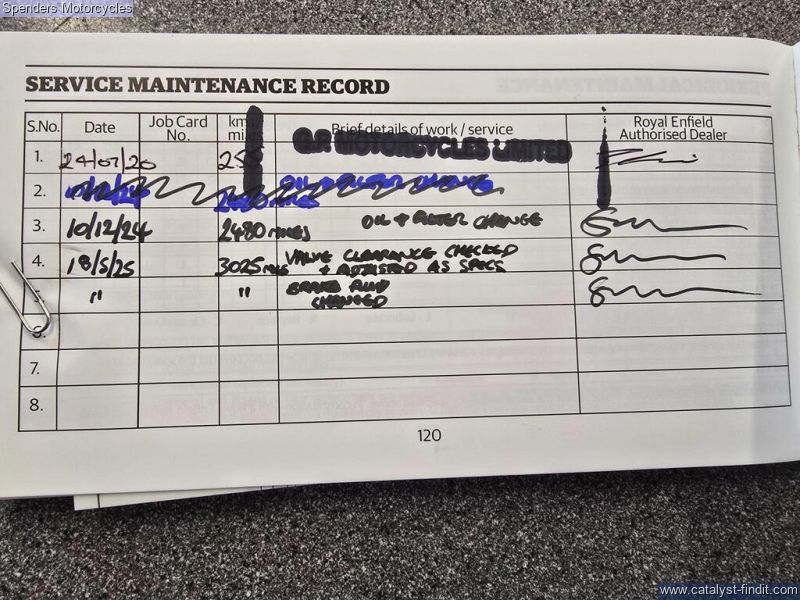 Spenders Motorcycles
SERVICE MAINTENANCE RECORD
S.No. Date Job Card No. km mil Brief details of work / service Royal Enfield Authorised Dealer
1. 24/07/20 MOTORCYCLES LIMITED
2. OIL + FILTER CHANGE 2480 MILES
3. 10/12/24 2480 MILES OIL + FILTER CHANGE
4. 18/5/25 3025 MLS VALVE CLEARANCE CHECKED
+ ADJUSTED AS SPECS
" " BRAKE FLUID
CHANGED
6.
7.
8.
120
www.catalyst-findit.com